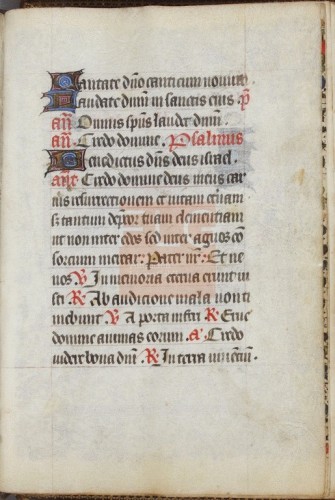 Cantate dño canticum nouum.
Laudate dnm in sanctis eius p̃
añ Omnis sp̃us laudet dnm.
añ Credo domine. Psalmus
Benedictus dñs deus israel.
añt Credo domine deus meus car
nis resurrectionem et uitam et̃nam
tantum deprecor tuam clementiam
ut non inter edos sed inter agnos cõ
sorcium merear: Pater nr̃: Et ne
nos ꝟ In memoria eterna erunt iu
sti R̃ Ab audicione mala non ti
mebunt ꝟ A porta inferi R̃ Erue
domine animas eorum A̅ Credo
uidere bona dnĩ R̃ In terra uiuẽtiũ.